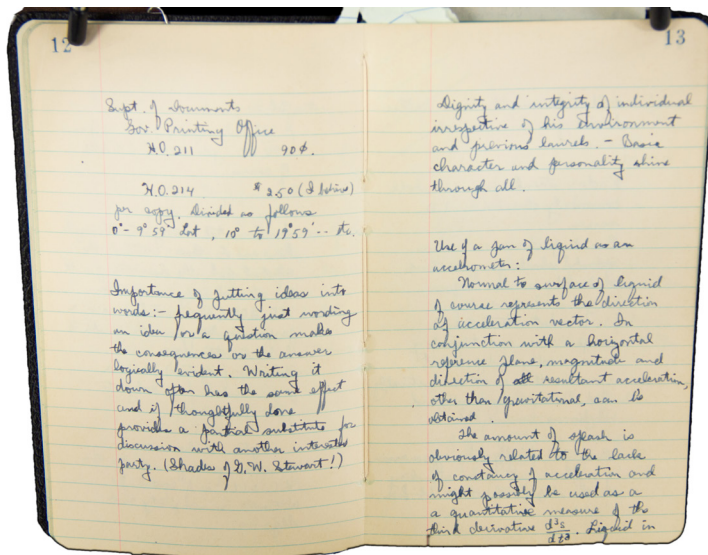 12
Supt. of Documents
Gov. Printing Office
H.O. 211 90¢.
H.O. 214 $2.50 (I believe)
per copy. Divided as follows
0°- 9°59' Lat, 10° to 19°59' -- etc.
Importance of putting ideas into
words:- frequently just wording
an idea or a question makes
the consequences or the answer
logically evident. Writing it
down often has the same effect
and if thoughtfully done
provides a partial substitute for
discussion with another interested
party. (Shades of G. W. Stewart!)
13
Dignity and integrity of individual
irrespective of his environment
and previous laurels. - Basic
character and personality shine
through all.
Use of a pan of liquid as an
accelerometer:
Normal to surface of liquid
of course represents the direction
of acceleration vector. In
conjunction with a horizontal
reference plane, magnitude and
direction of resultant acceleration,
other than gravitational, can be
obtained.
The amount of splash is
obviously related to the lack
of constancy of acceleration and
might possibly be used as a
a quantitative measure of the
third derivative d³s/dt³. Liquid in